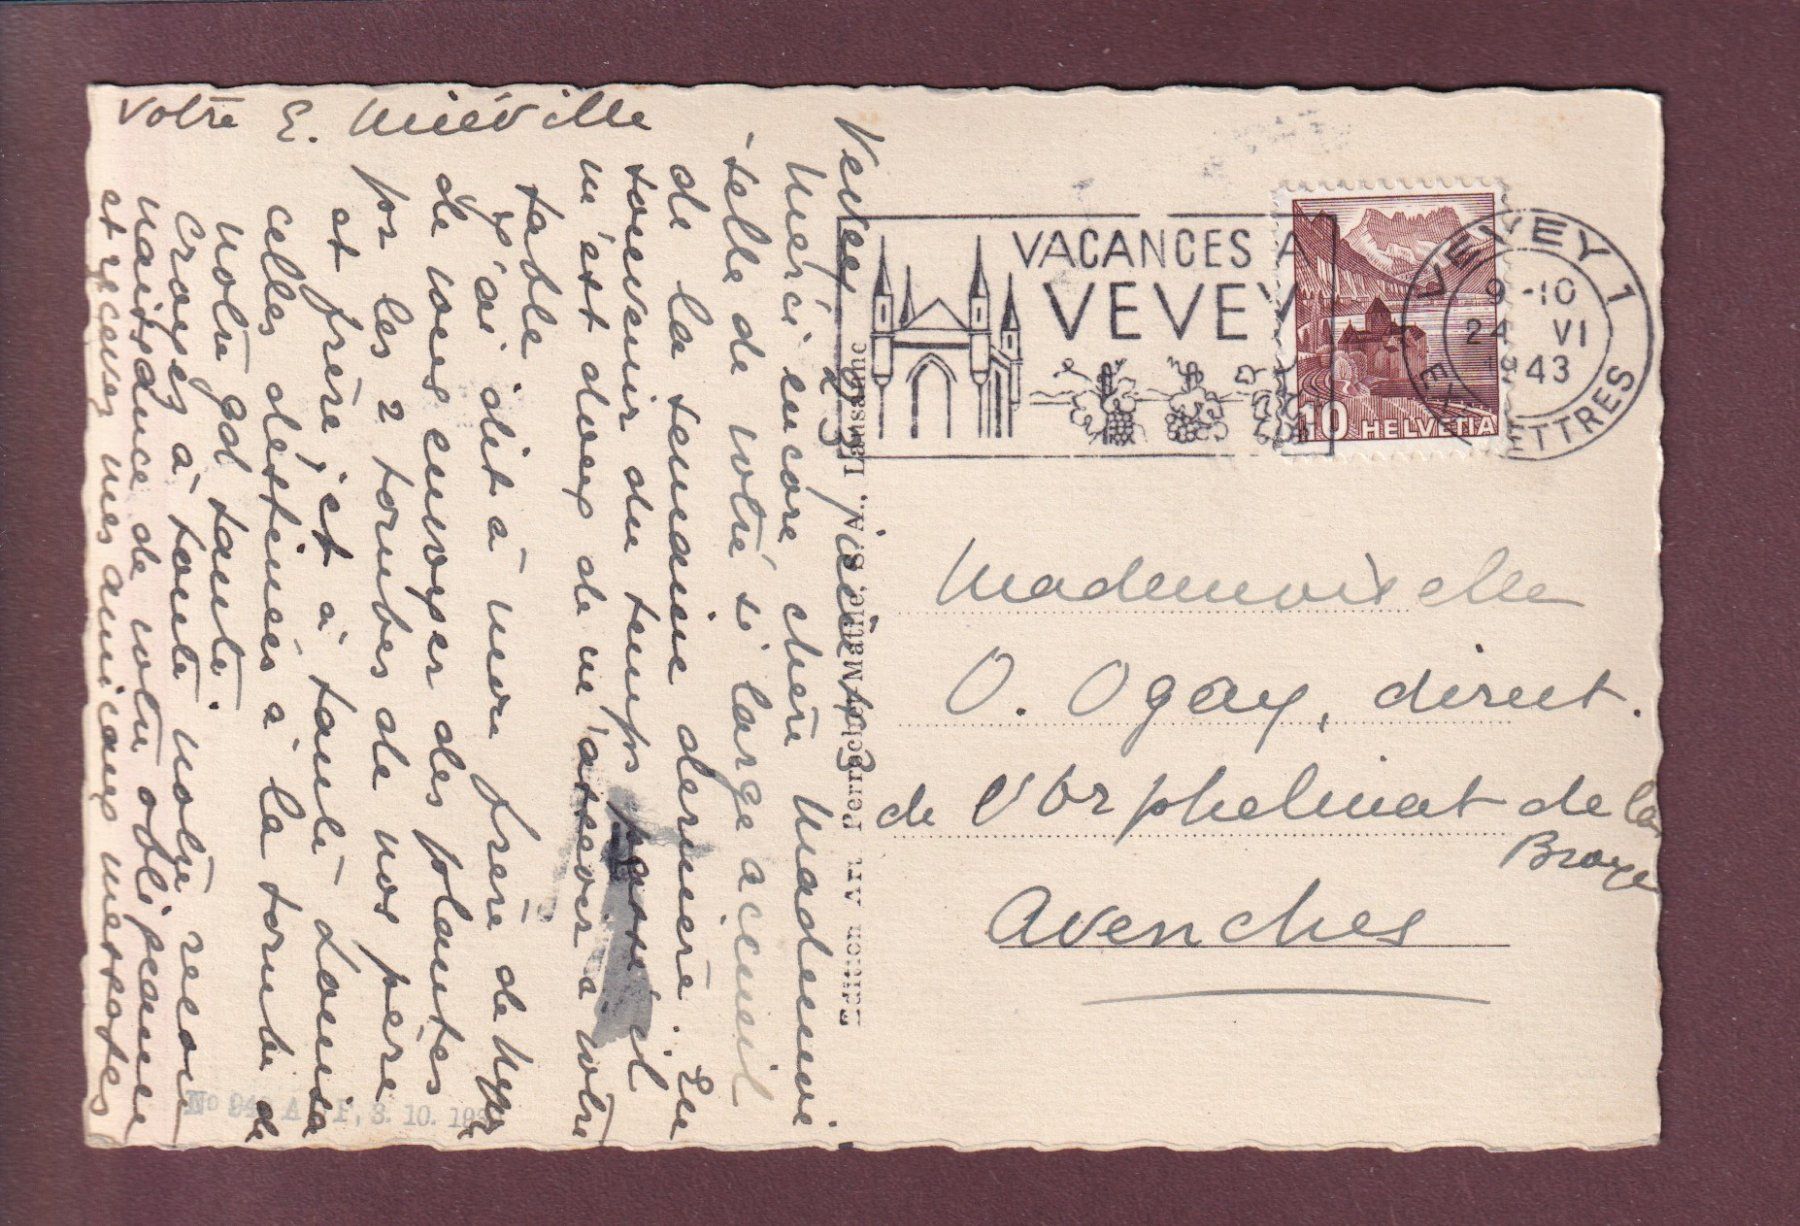 Vevey 23 juin 43
Merci encore chère Mademoi
selle de votre si large accueil
de la semaine dernière. En
souvenir du temps passé il
m'est doux de m'asseoir à votre
table
J'ai dit à mon frère de Nyon
de vous envoyer des plantes
pr les 2 tombes de nos père
et frère, et à tante Louisa
celles destinées à la tombe de
notre gd tante.
Croyez à toute notre recon
naissance de votre obligeance
et recevez mes amicaux messages
Votre E. Miéville
Edition Art. Perrochet-Matile, S. A., Lausanne
VACANCES A
VEVEY
VEVEY 1
9-10
24 VI
1943
LETTRES
10 HELVETIA
Mademoiselle
O. Ogay, direct.
de l'Orphelinat de la
Broye
Avenches
No 94 A F, 3. 10. 19